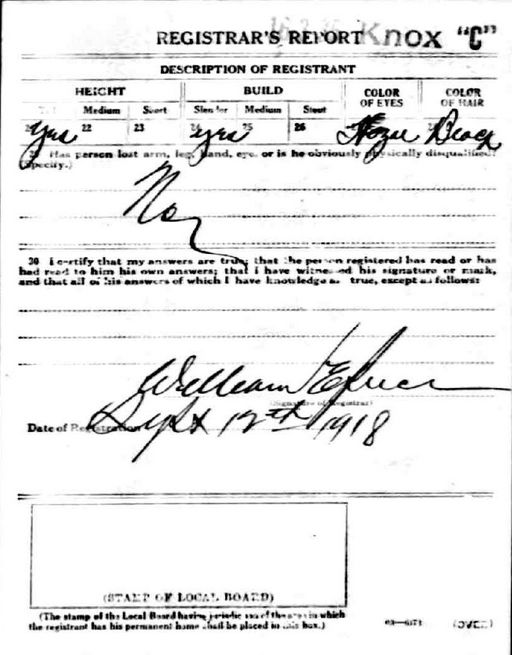 REGISTRAR'S REPORT Knox "C"
DESCRIPTION OF REGISTRANT
HEIGHT BUILD COLOR OF EYES COLOR OF HAIR
Tall Medium Short Slender Medium Stout
21 22 23 24 25 26 27 28
Yes Yes Hazel Black
29 Has person lost arm, leg, hand, eye, or is he obviously physically disqualified?
(Specify.)
No
30 I certify that my answers are true; that the person registered has read or has
had read to him his own answers; that I have witnessed his signature or mark,
and that all of his answers of which I have knowledge are true, except as follows:
William
(Signature of Registrar)
Date of Registration Sept 12th 1918
(STAMP OF LOCAL BOARD)
(The stamp of the Local Board having jurisdiction of the area in which
the registrant has his permanent home shall be placed in this box.)
(OVER)